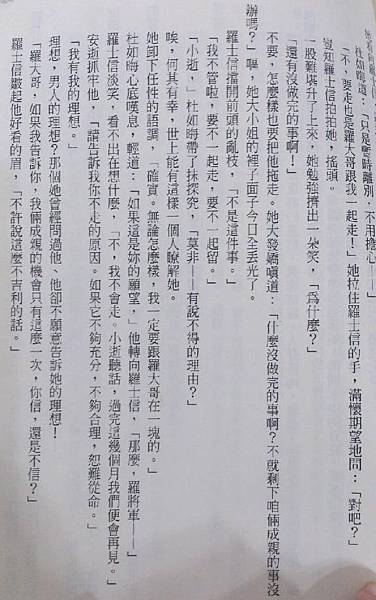 杜如晦道：「只是暫時離別，不用擔心——」
「不，要走也是羅大哥跟我一起走！」她拉住羅士信的手，滿懷期望地問：「對吧？」
豈知羅士信拍拍她，搖頭。
一股難堪升了上來，她勉強擠出一朵笑，「為什麼？」
「還有沒做完的事啊！」
不要，怎麼樣也要把他拖走。她大發嬌嗔道：「什麼沒做完的事啊？不就剩下咱倆成親的事沒
辦嗎？」嘔，她大小姐的裡子面子今日全丟光了。
羅士信擋開前頭的亂枝，「不是這件事。」
「我不管啦，要不一起走，要不一起留。」
「小逝，」杜如晦帶了抹探究，「莫非——有說不得的理由？」
唉，何其有幸，世上能有這樣一個人瞭解她。
她卸下任性的語調，「確實。無論怎麼樣，我一定要跟羅大哥在一塊的。」
杜如晦心底嘆息，輕道：「如果這是妳的願望，」他轉向羅士信，「那麼，羅將軍——」
羅士信淡笑，看不出在想什麼，「不，我不會走。小逝聽話，過完這幾個月我們便會再見。」
安逝抓牢他，「請告訴我你不走的原因。如果它不夠充分，不夠合理，恕難從命。」
「我有我的理想。」
理想，男人的理想？那個她曾經問過他、他卻不願意告訴她的理想！
「羅大哥，如果我告訴你，我倆成親的機會只有這麼一次，你信，還是不信？」
羅士信皺起他好看的眉，「不許說這麼不吉利的話。」